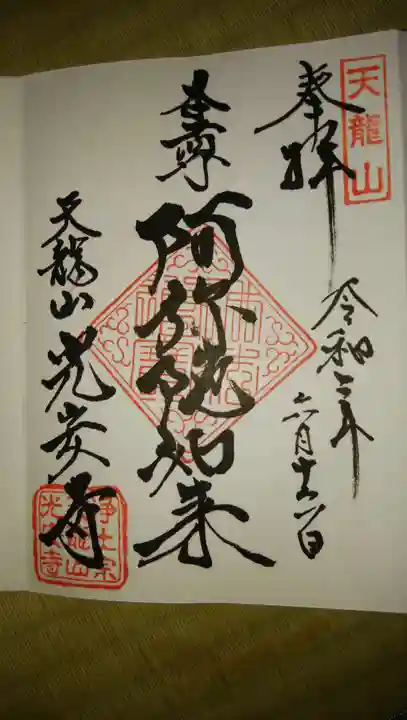 天龍山
奉拝
令和二年
六月
本尊
阿弥陀如来
天龍山 光安寺
浄土宗
天龍山
光安寺